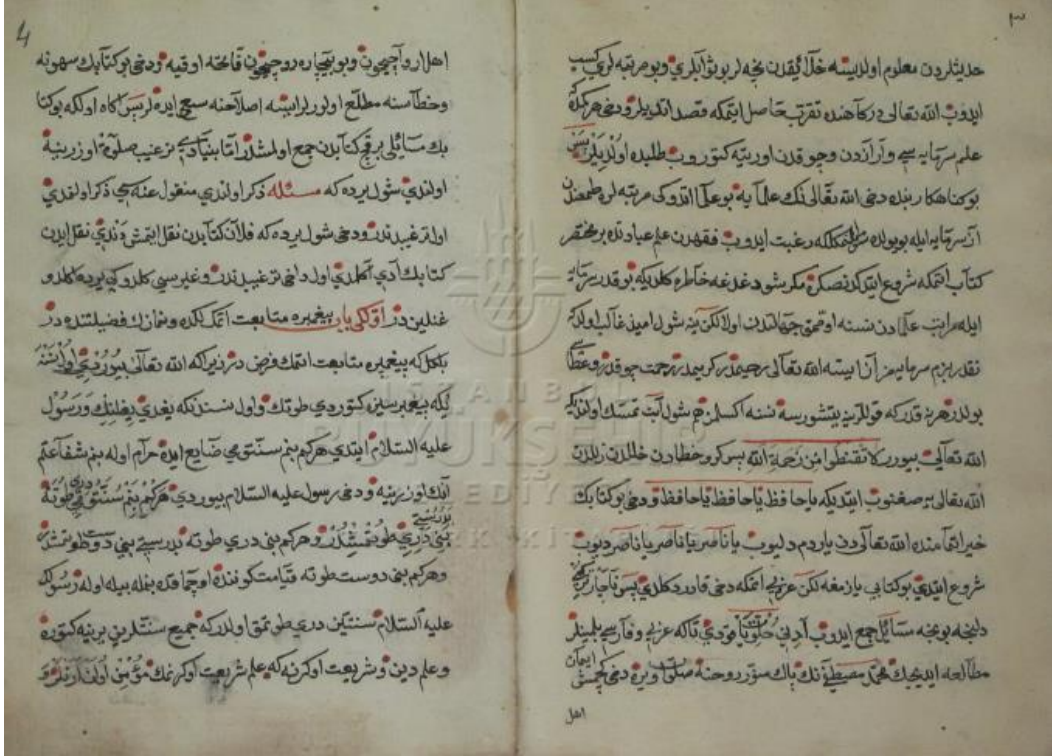 ٣
حديثلردن معلوم اولديسه خلايقدن نچه لر بو ثوابلري و بو مرتبه لري كسب
ايدوب الله تعالى دركاهنده تقرب حاصل ايتمكه قصد اتديلر و دخى هر كمكه
علم سرمايه سى وار آندن وجوقدن اورتيه كتوروب طلبده اولديلر پس
بو كناهكار بنده دخى الله تعالى نك علمايه بو علملا اتدوكى مرتبه لره طمعندن
آز سرمايه ايله بو يولده رغبت ايدوب فقهدن علم عباداتده بر مختصر
كتاب اتمكه شروع ايتدكدنصكره مكر شو دغدغه خاطره كلديكه بو قدر سرمايه
ايله مراتب علمادن نسنه اومق جهالتدن اولا لكن ينه شول اميد غالب اولدكه
نقدر بزم سرمايه مز آز ايسه الله تعالى رحيمدر كريمدر رحمت چوقدر و عطاسى
بولدر هر نه قدر كه قوللرينه يتشورسه نسنه اكسلمز هم شول آيت تمسك اولنديكه
الله تعالى بيورر لا تقنطوا من رحمة الله پس كرو خطادن خللدن زللدن
الله تعالى يه صغنوب ايتديكه يا حافظ يا حافظ يا حافظ و دخى بو كتابك
خير اتمامنده الله تعالى دن ياردم دليوب يا ناصر يا ناصر يا ناصر ديوب
شروع ايتدى بو كتابى يازمغه لكن عربى اتمكه دخى قادردكلدى پس ناچار تركى
دلنجه بو نچه مسائل جمع ايدوب آدنى قودى تا كه عربى و فارسى بلمينلر
مطالعه ايديجك محمد مصطفى نك پاك منور روحنه صلوات ويره دخى كچمش ايمان
اهل
4
اهل ارواحيچون و بو بيچاره روحيچون فاتحه اوقيه و دخى بو كتابك سهونه
و خطاسنه مطلع اولورلر ايسه اصلاحنه سعى ايده لر پس آكاه اولكه بو كتا
بك مسائلى بر قچ كتابدن جمع اولمشدر اما بنيادى ترغيب صلوة اوزرينه
اولندى شول يرده كه مسئله ذكر اولندى منقول عنه سى ذكر اولندى
اول ترغيبدندر و دخى شول يرده كه فلان كتابدن نقل ايتمش دندى نقل ايدن
كتابك آدى آكلمدى اول داخى ترغيبدندر و غيريسى كلدوكى يرده كلدو
غندين در اولكى باب پيغمبره متابعت اتمكلكده و نمازك فضيلتنده در
بلكل كه پيغمبره متابعت اتمك فرض در زيرا كه الله تعالى بيوردى اول نسنه
يكه پيغمبرسز كتوردى طوتك و اول نسندنكه يغدى يغلنك و رسول
عليه السلام ايتدى هر كم بنم سنتومى ضايع ايده حرام اوله بنم شفاعتم
آنك اوزرينه و دخى رسول عليه السلام بيوردى هر كم بنم سنتومى درى طوته
بنى درى طوتمشدر و هر كم بنى درى طوته بدرستى بنى دوست طوتمشدر
و هر كم بنى دوست طوته قيامت كوننده اوچماقده بنمله بيله اوله رسولك
عليه السلام سنتين درى طوتمق اولدر كه جميع سنتلرين يرينه كتوره
و علم دين و شريعت اوكرنه كه علم شريعت اوكرنمك مؤمن اولنلره فرضدر و